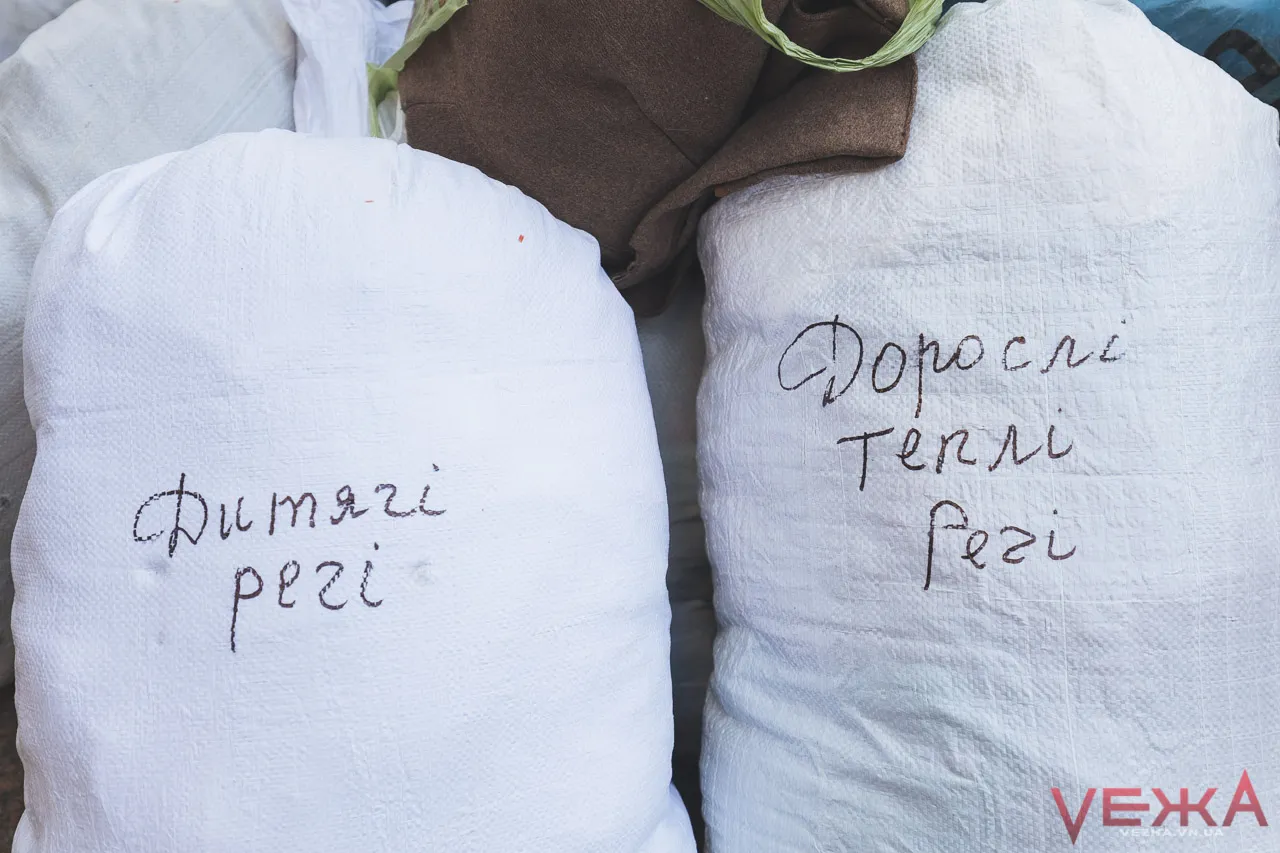 Дитячі
речі
Дорослі
теплі
Речі
VЕЖА
VEZHA.VN.UA